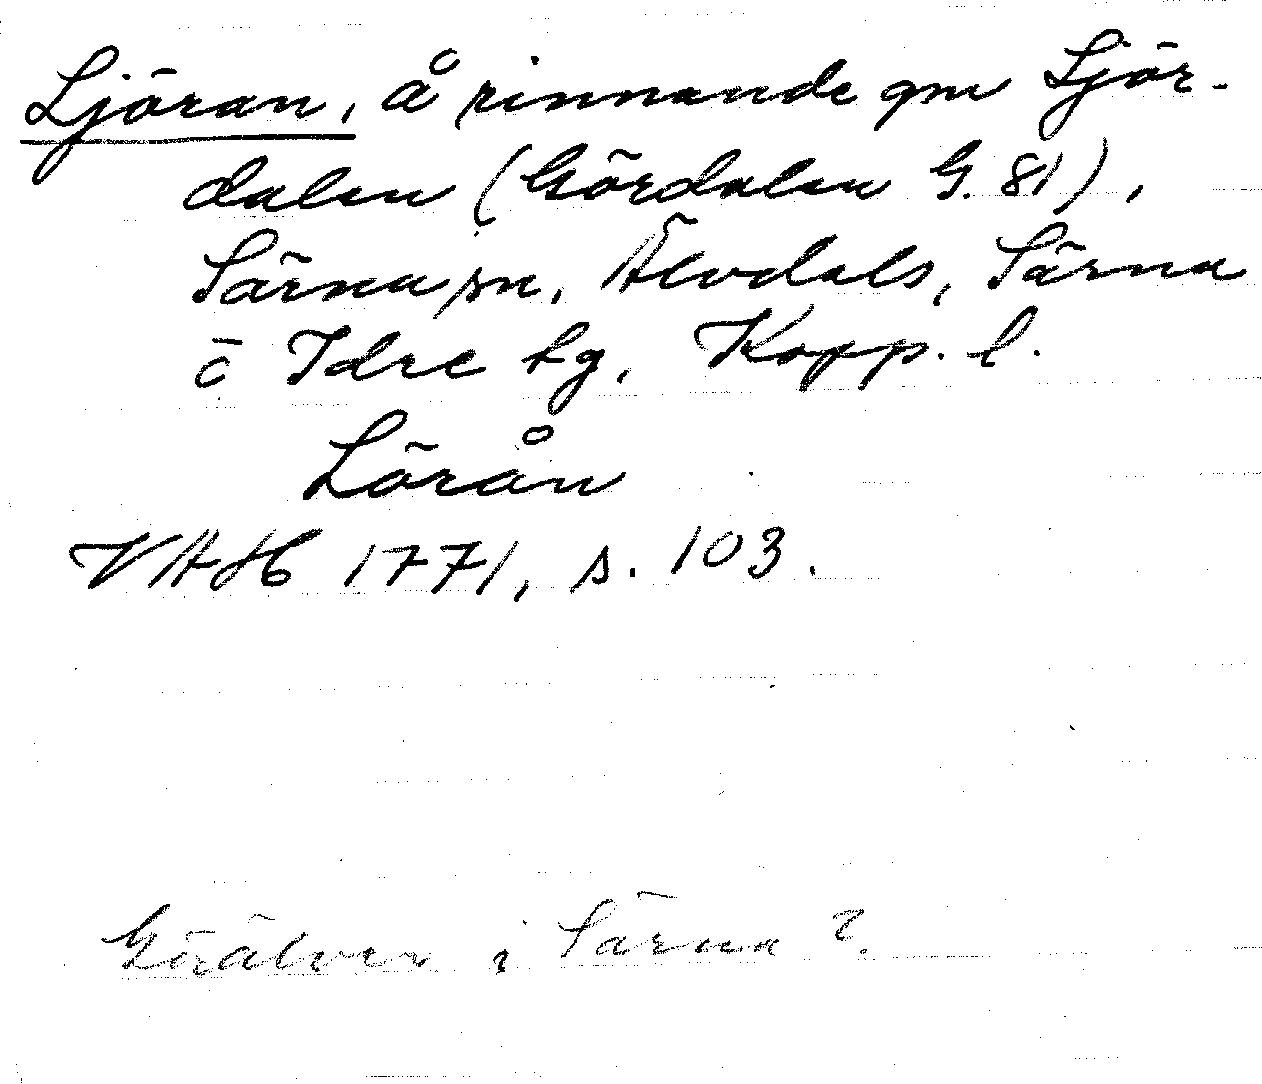 Ljöran, å rinnande gm Ljör-
dalen (Gördalen G. 81),
Särna sn, Älvdals, Särna
o Idre tg, Kopp. l.
Lörån
VAH 1771, s. 103.
Görälven i Särna?